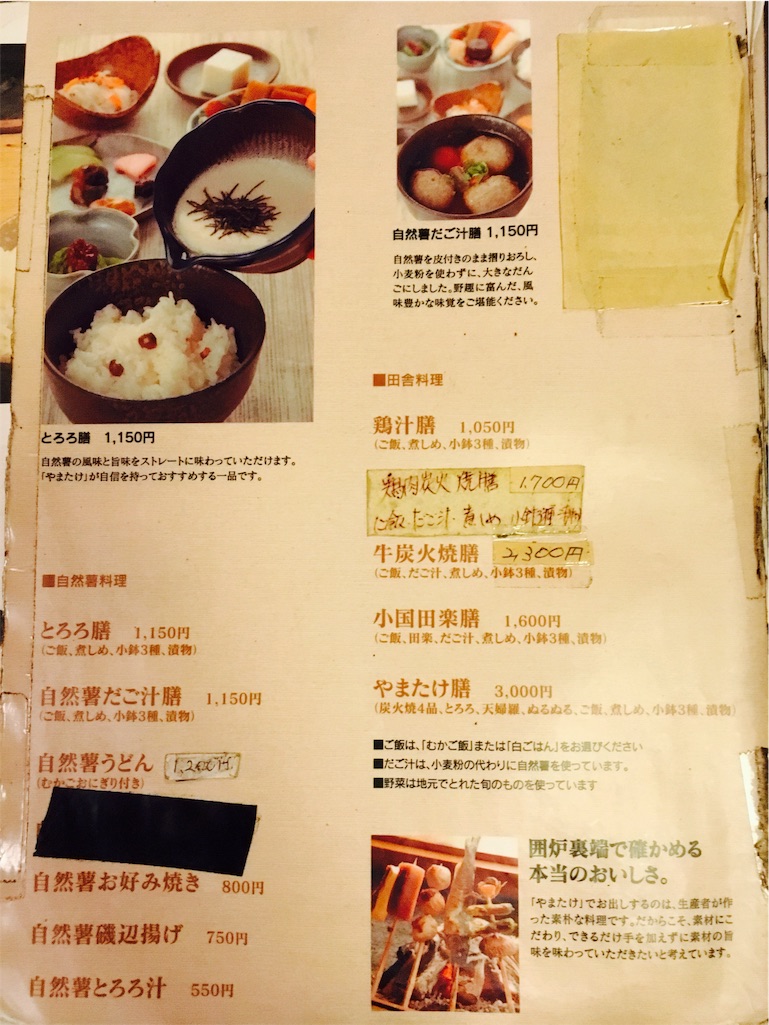 とろろ膳 1,150円
自然薯の風味と旨味をストレートに味わっていただけます。
「やまたけ」が自信を持っておすすめする一品です。
■自然薯料理
とろろ膳 1,150円
(ご飯、煮しめ、小鉢3種、漬物)
自然薯だご汁膳 1,150円
(ご飯、煮しめ、小鉢3種、漬物)
自然薯うどん
(むかごおにぎり付き)
自然薯お好み焼き 800円
自然薯磯辺揚げ 750円
自然薯とろろ汁 550円
自然薯だご汁膳 1,150円
自然薯を皮付きのまま摺りおろし、
小麦粉を使わずに、大きなだん
ごにしました。野趣に富んだ、風
味豊かな味覚をご堪能ください。
■田舎料理
鶏汁膳 1,050円
(ご飯、煮しめ、小鉢3種、漬物)
鶏肉炭火焼膳 1,700円
ご飯・だご汁・煮しめ
牛炭火焼膳 2,300円
(ご飯、だご汁、煮しめ、小鉢3種、漬物)
小国田楽膳 1,600円
(ご飯、田楽、だご汁、煮しめ、小鉢3種、漬物)
やまたけ膳 3,000円
(炭火焼4品、とろろ、天婦羅、ぬるぬる、ご飯、煮しめ、小鉢3種、漬物)
■ご飯は、「むかご飯」または「白ごはん」をお選びください
■だご汁は、小麦粉の代わりに自然薯を使っています。
■野菜は地元でとれた旬のものを使っています
囲炉裏端で確かめる
本当のおいしさ。
「やまたけ」でお出しするのは、生産者が作
った素朴な料理です。だからこそ、素材にこ
だわり、できるだけ手を加えずに素材の旨
味を味わっていただきたいと考えています。